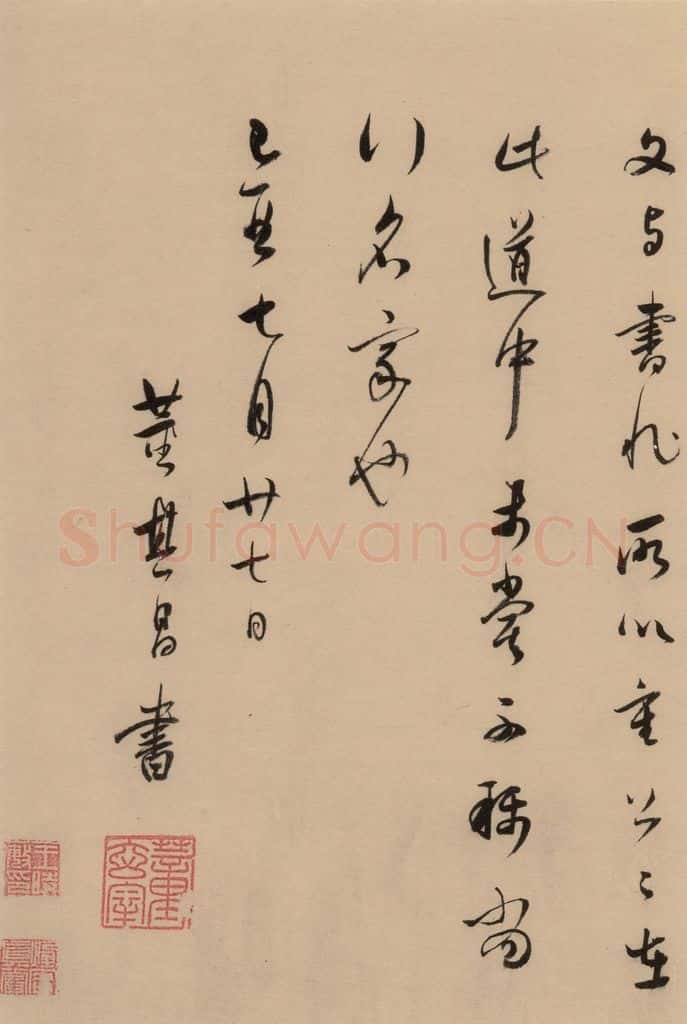 文与書非所以重公公在
此道中未嘗不稱當
行名家也
己亥七月廿七日
董其昌書
Shufawang.CN